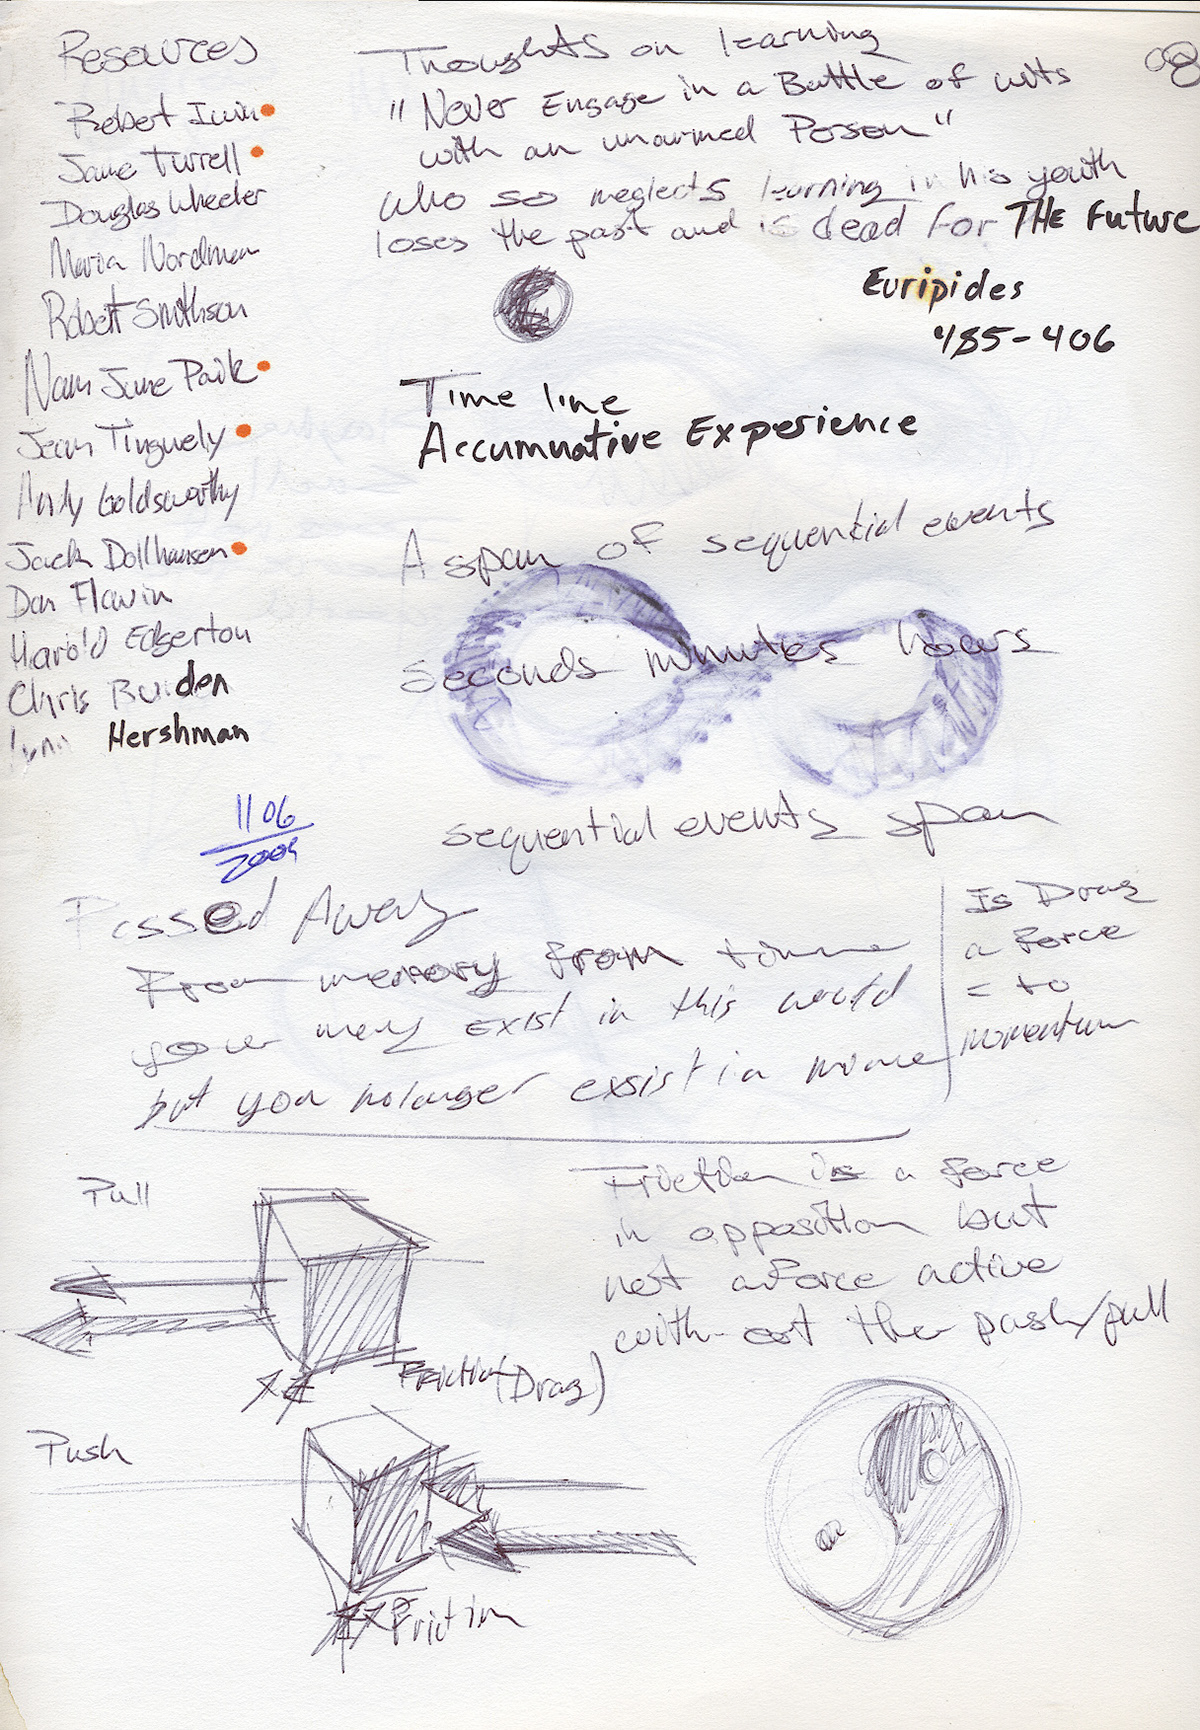 Resources
Robert Irwin
Jame Turrell
Douglas Wheeler
Maria Nordman
Robert Smithson
Nam June Paik
Jean Tinguely
Andy Goldsworthy
Jack Dollhausen
Dan Flavin
Harold Edgerton
Chris Burden
Lynn Hershman
1106
2004
08
Thoughts on learning
"Never Engage in a Battle of wits
with an unarmed Person"
who so neglects learning in his youth
loses the past and is dead for THE Future
Euripides
485-406
Time line
Accumnative Experience
A span of sequential events
seconds minutes hours
sequential events span
Passed Away
From memory from time
your may exist in this world
but you no longer exsist in mine
Is Drag
a force
= to
momentum
Pull
Friction (Drag)
Friction is a force
in opposition but
not a force active
with-out the push/pull
Push
Friction